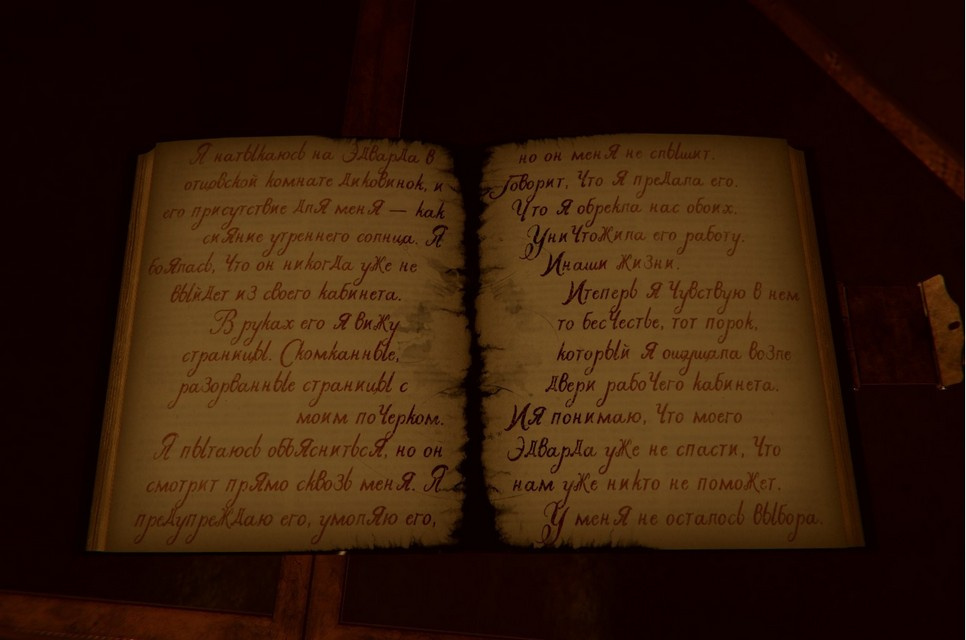 Я натыкаюсь на Эдварда в
отцовской комнате диковинок, и
его присутствие для меня — как
сияние утреннего солнца. Я
боялась, что он никогда уже не
выйдет из своего кабинета.
В руках его я вижу
страницы. Скомканные,
разорванные страницы с
моим почерком.
Я пытаюсь объясниться, но он
смотрит прямо сквозь меня. Я
предупреждаю его, умоляю его,
но он меня не слышит.
Говорит, что я предала его.
Что я обрекла нас обоих.
Уничтожила его работу.
И наши жизни.
И теперь я чувствую в нем
то бесчестье, тот порок,
который я ощущала возле
двери рабочего кабинета.
И я понимаю, что моего
Эдварда уже не спасти, что
нам уже никто не поможет.
У меня не осталось выбора.